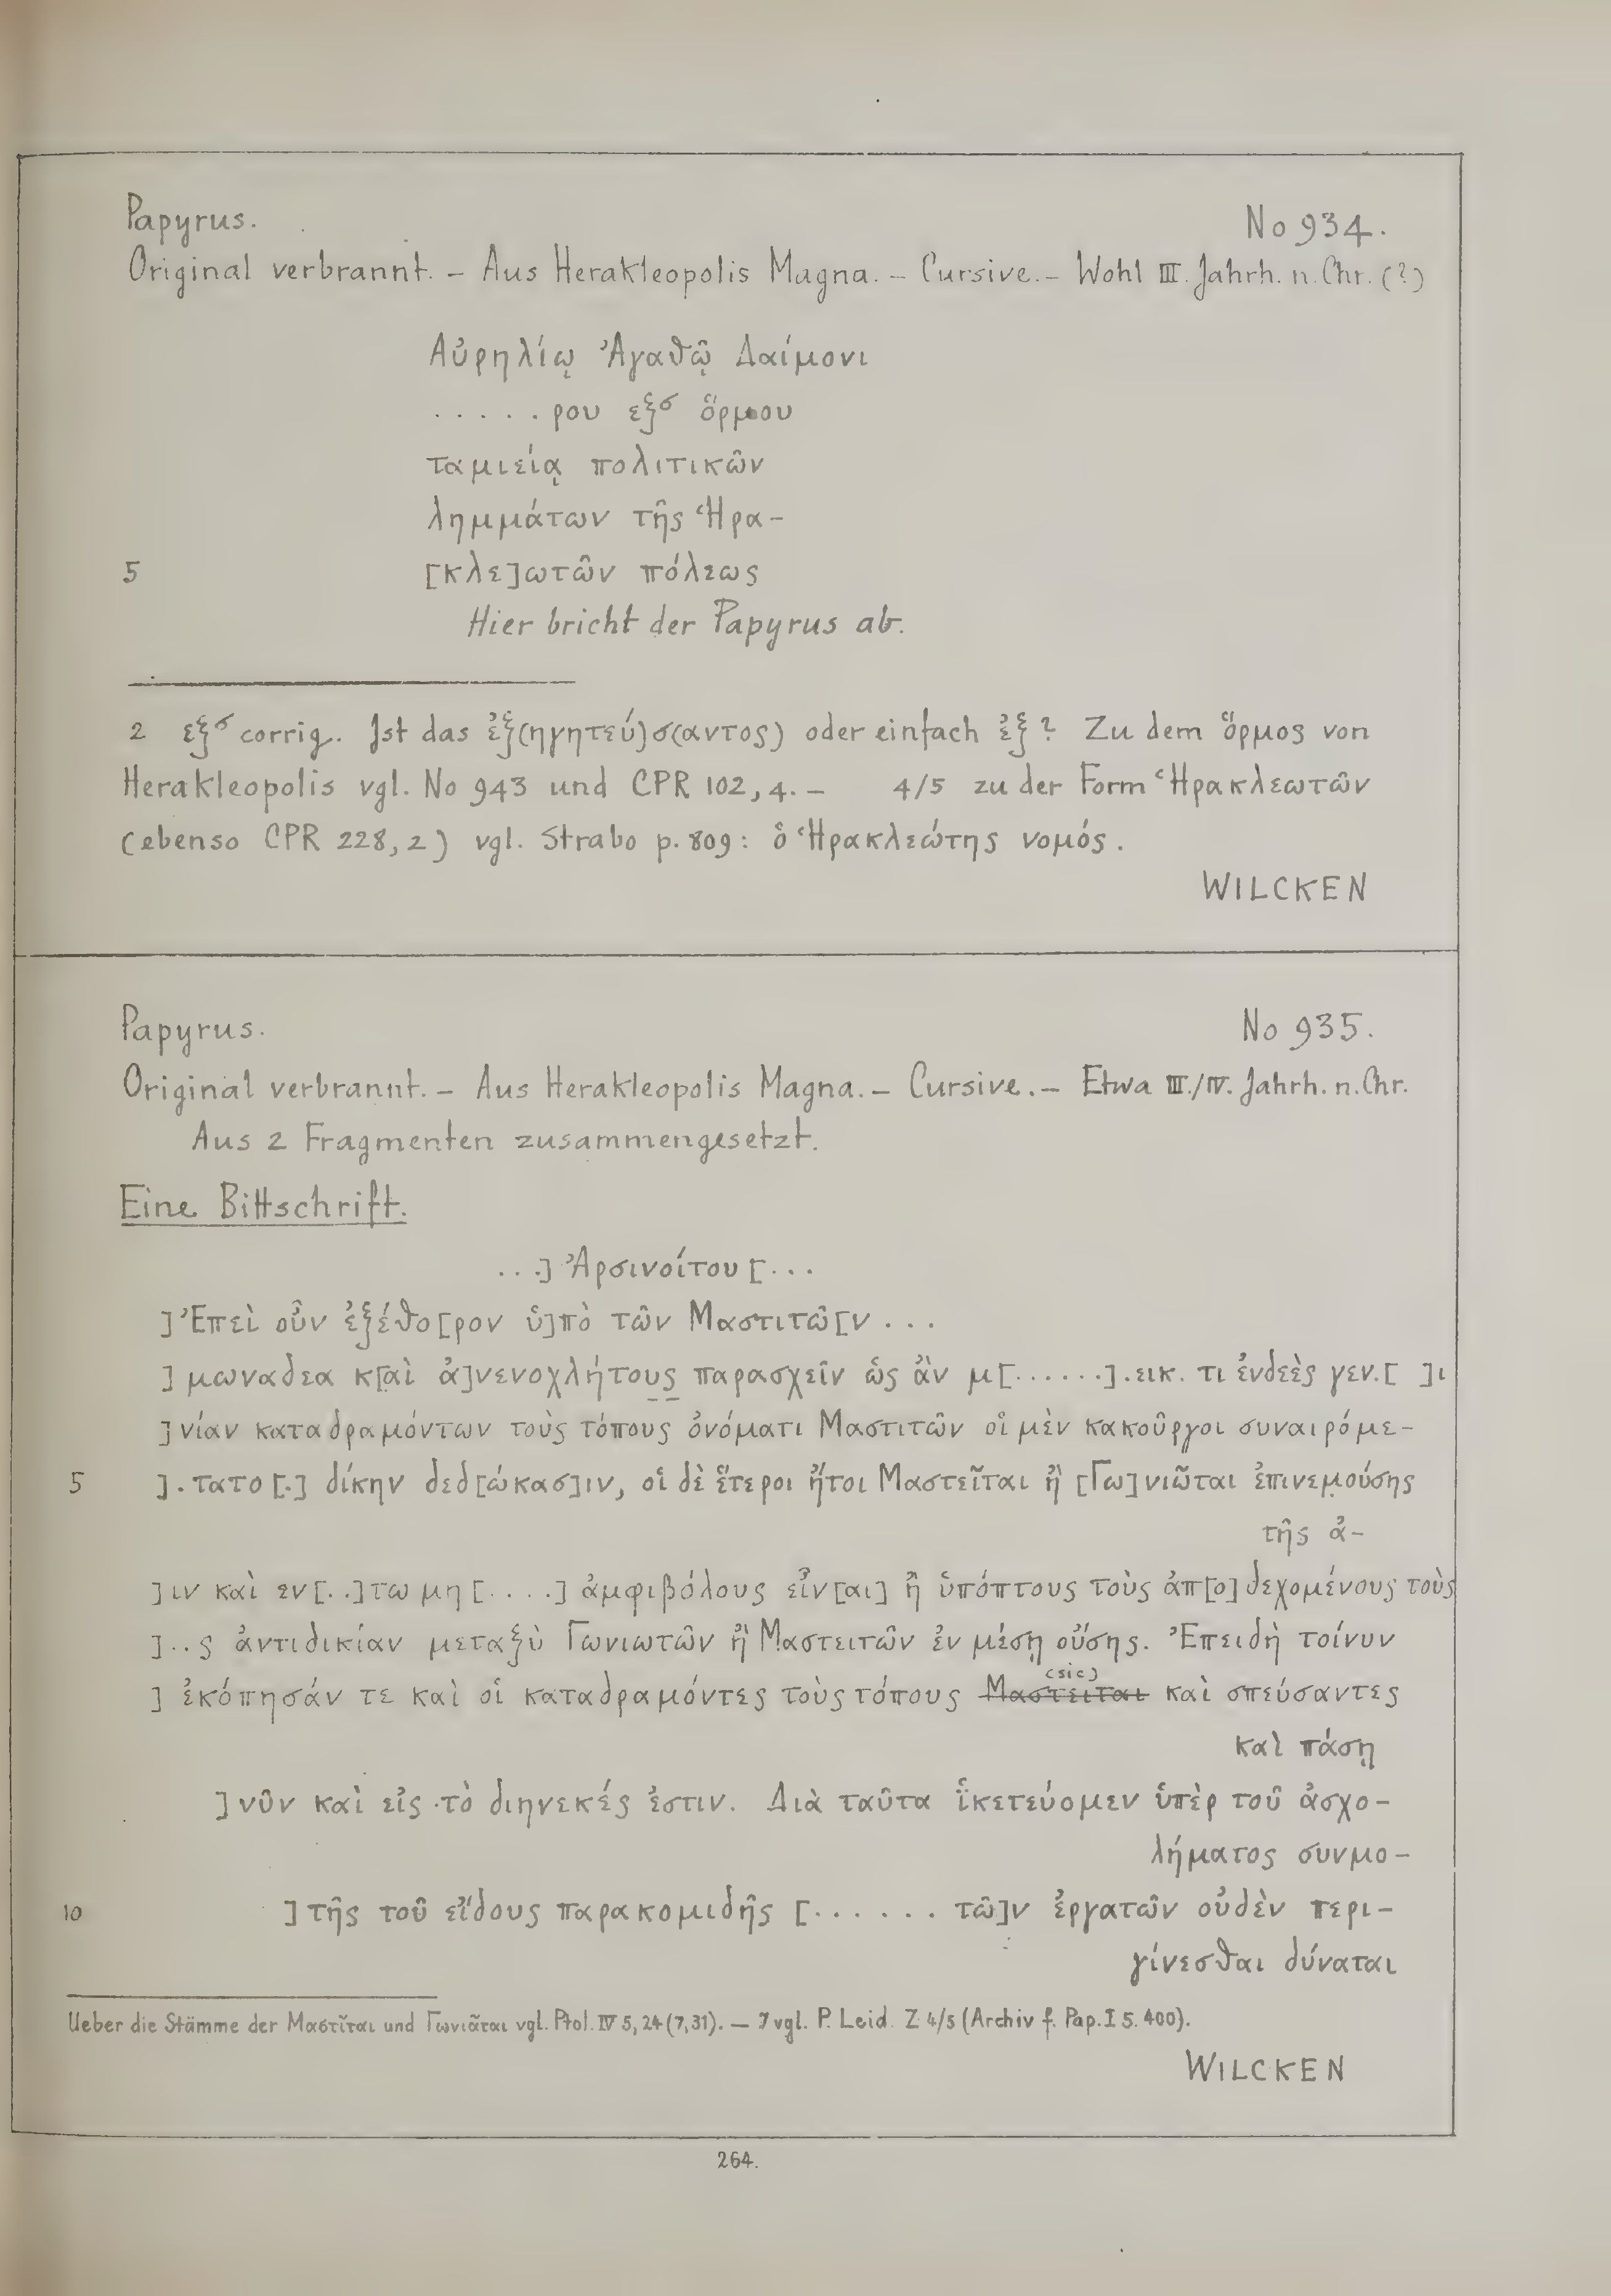 Papyrus.
No 934.
Original verbrannt. – Aus Herakleopolis Magna. – Cursive. – Wohl III. Jahrh. n. Chr. (?)
Αὐρηλίῳ Ἀγαθῷ Δαίμονι
. . . . . ρου εξσ ὅρμου
ταμιείᾳ πολιτικῶν
λημμάτων τῆς Ἡρα-
5 [κλε]ωτῶν πόλεως
Hier bricht der Papyrus ab.
2 εξσ corrig. Ist das ἐξ(ηγητεύ)σ(αντος) oder einfach ἐξ? Zu dem ὅρμος von
Herakleopolis vgl. No 943 und CPR 102, 4. – 4/5 zu der Form Ἡρακλεωτῶν
(ebenso CPR 228, 2) vgl. Strabo p. 809: ὁ Ἡρακλεώτης νομός.
WILCKEN
Papyrus.
No 935.
Original verbrannt. – Aus Herakleopolis Magna. – Cursive. – Etwa III./IV. Jahrh. n. Chr.
Aus 2 Fragmenten zusammengesetzt.
Eine Bittschrift.
. . .] Ἀρσινοίτου [. . .
] Ἐπεὶ οὖν ἐξέθο[ρον ὑ]πὸ τῶν Μαστιτῶ[ν . . .
] μωναδεα κ[αὶ ἀ]νενοχλήτους παρασχεῖν ὡς ἂν μ[. . . . . .].εικ. τι ἐνδεὲς γεν.[ ]ι
]νίαν καταδραμόντων τοὺς τόπους ὀνόματι Μαστιτῶν οἱ μὲν κακοῦργοι συναιρόμε-
5 ]. τατο[.] δίκην δεδ[ώκασ]ιν, οἱ δὲ ἕτεροι ἤτοι Μαστεῖται ἢ [Γω]νιῶται ἐπινεμούσης
τῆς ἀ-
]ιν καὶ εν[. .]τω μη [. . . .] ἀμφιβόλους εἶν[αι] ἢ ὑπόπτους τοὺς ἀπ[ο]δεχομένους τοὺς
]. . ς ἀντιδικίαν μεταξὺ Γωνιωτῶν ἢ Μαστειτῶν ἐν μέσῃ οὔσης. Ἐπειδὴ τοίνυν
(sic)
] ἐκόπησάν τε καὶ οἱ καταδραμόντες τοὺς τόπους Μαστεῖται καὶ σπεύσαντες
καὶ πάσῃ
] νῦν καὶ εἰς τὸ διηνεκές ἐστιν. Διὰ ταῦτα ἱκετεύομεν ὑπὲρ τοῦ ἀσχο-
λήματος συνμο-
10 ] τῆς τοῦ εἴδους παρακομιδῆς [. . . . . . τῶ]ν ἐργατῶν οὐδὲν περι-
γίνεσθαι δύναται
Ueber die Stämme der Μαστῖται und Γωνιᾶται vgl. Ptol. IV 5, 24 (7, 31). – 7 vgl. P. Leid. Z 4/5 (Archiv f. Pap. I S. 400).
WILCKEN
264.